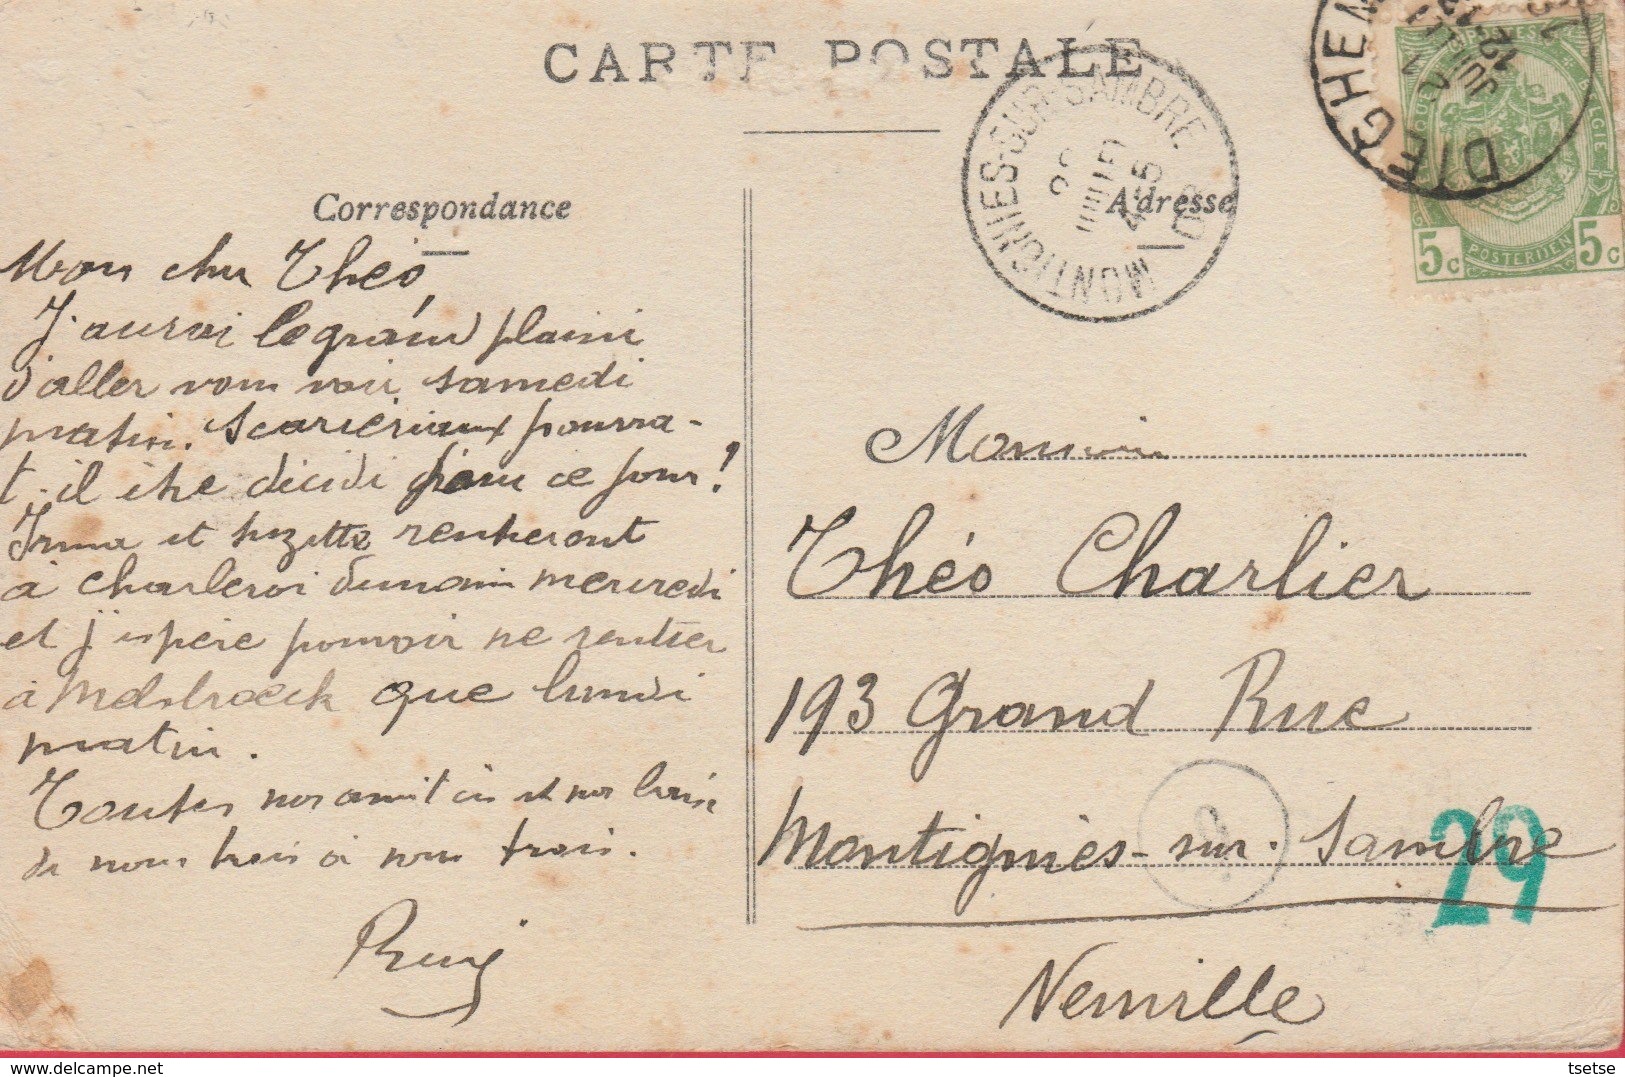 CARTE POSTALE
MONTIGNIES-SUR-SAMBRE
JUIL
DIEGHEM
JUIL
12
5c POSTERIJEN 5c
Correspondance
Adresse
Mon cher Théo,
J'aurai le grand plaisir
d'aller vous voir samedi
matin. pourra-
t-il être décidé pour ce jour!
Irma et Suzette rentreront
à Charleroi demain mercredi
et j'espère pouvoir ne rentrer
à que lundi
matin.
Toutes nos amitiés et nos baisers
de nous trois à vous trois.
Monsieur
Théo Charlier
193 Grand Rue
Montignies-sur-Sambre
Neuville
29
delcampe.net
tsetse